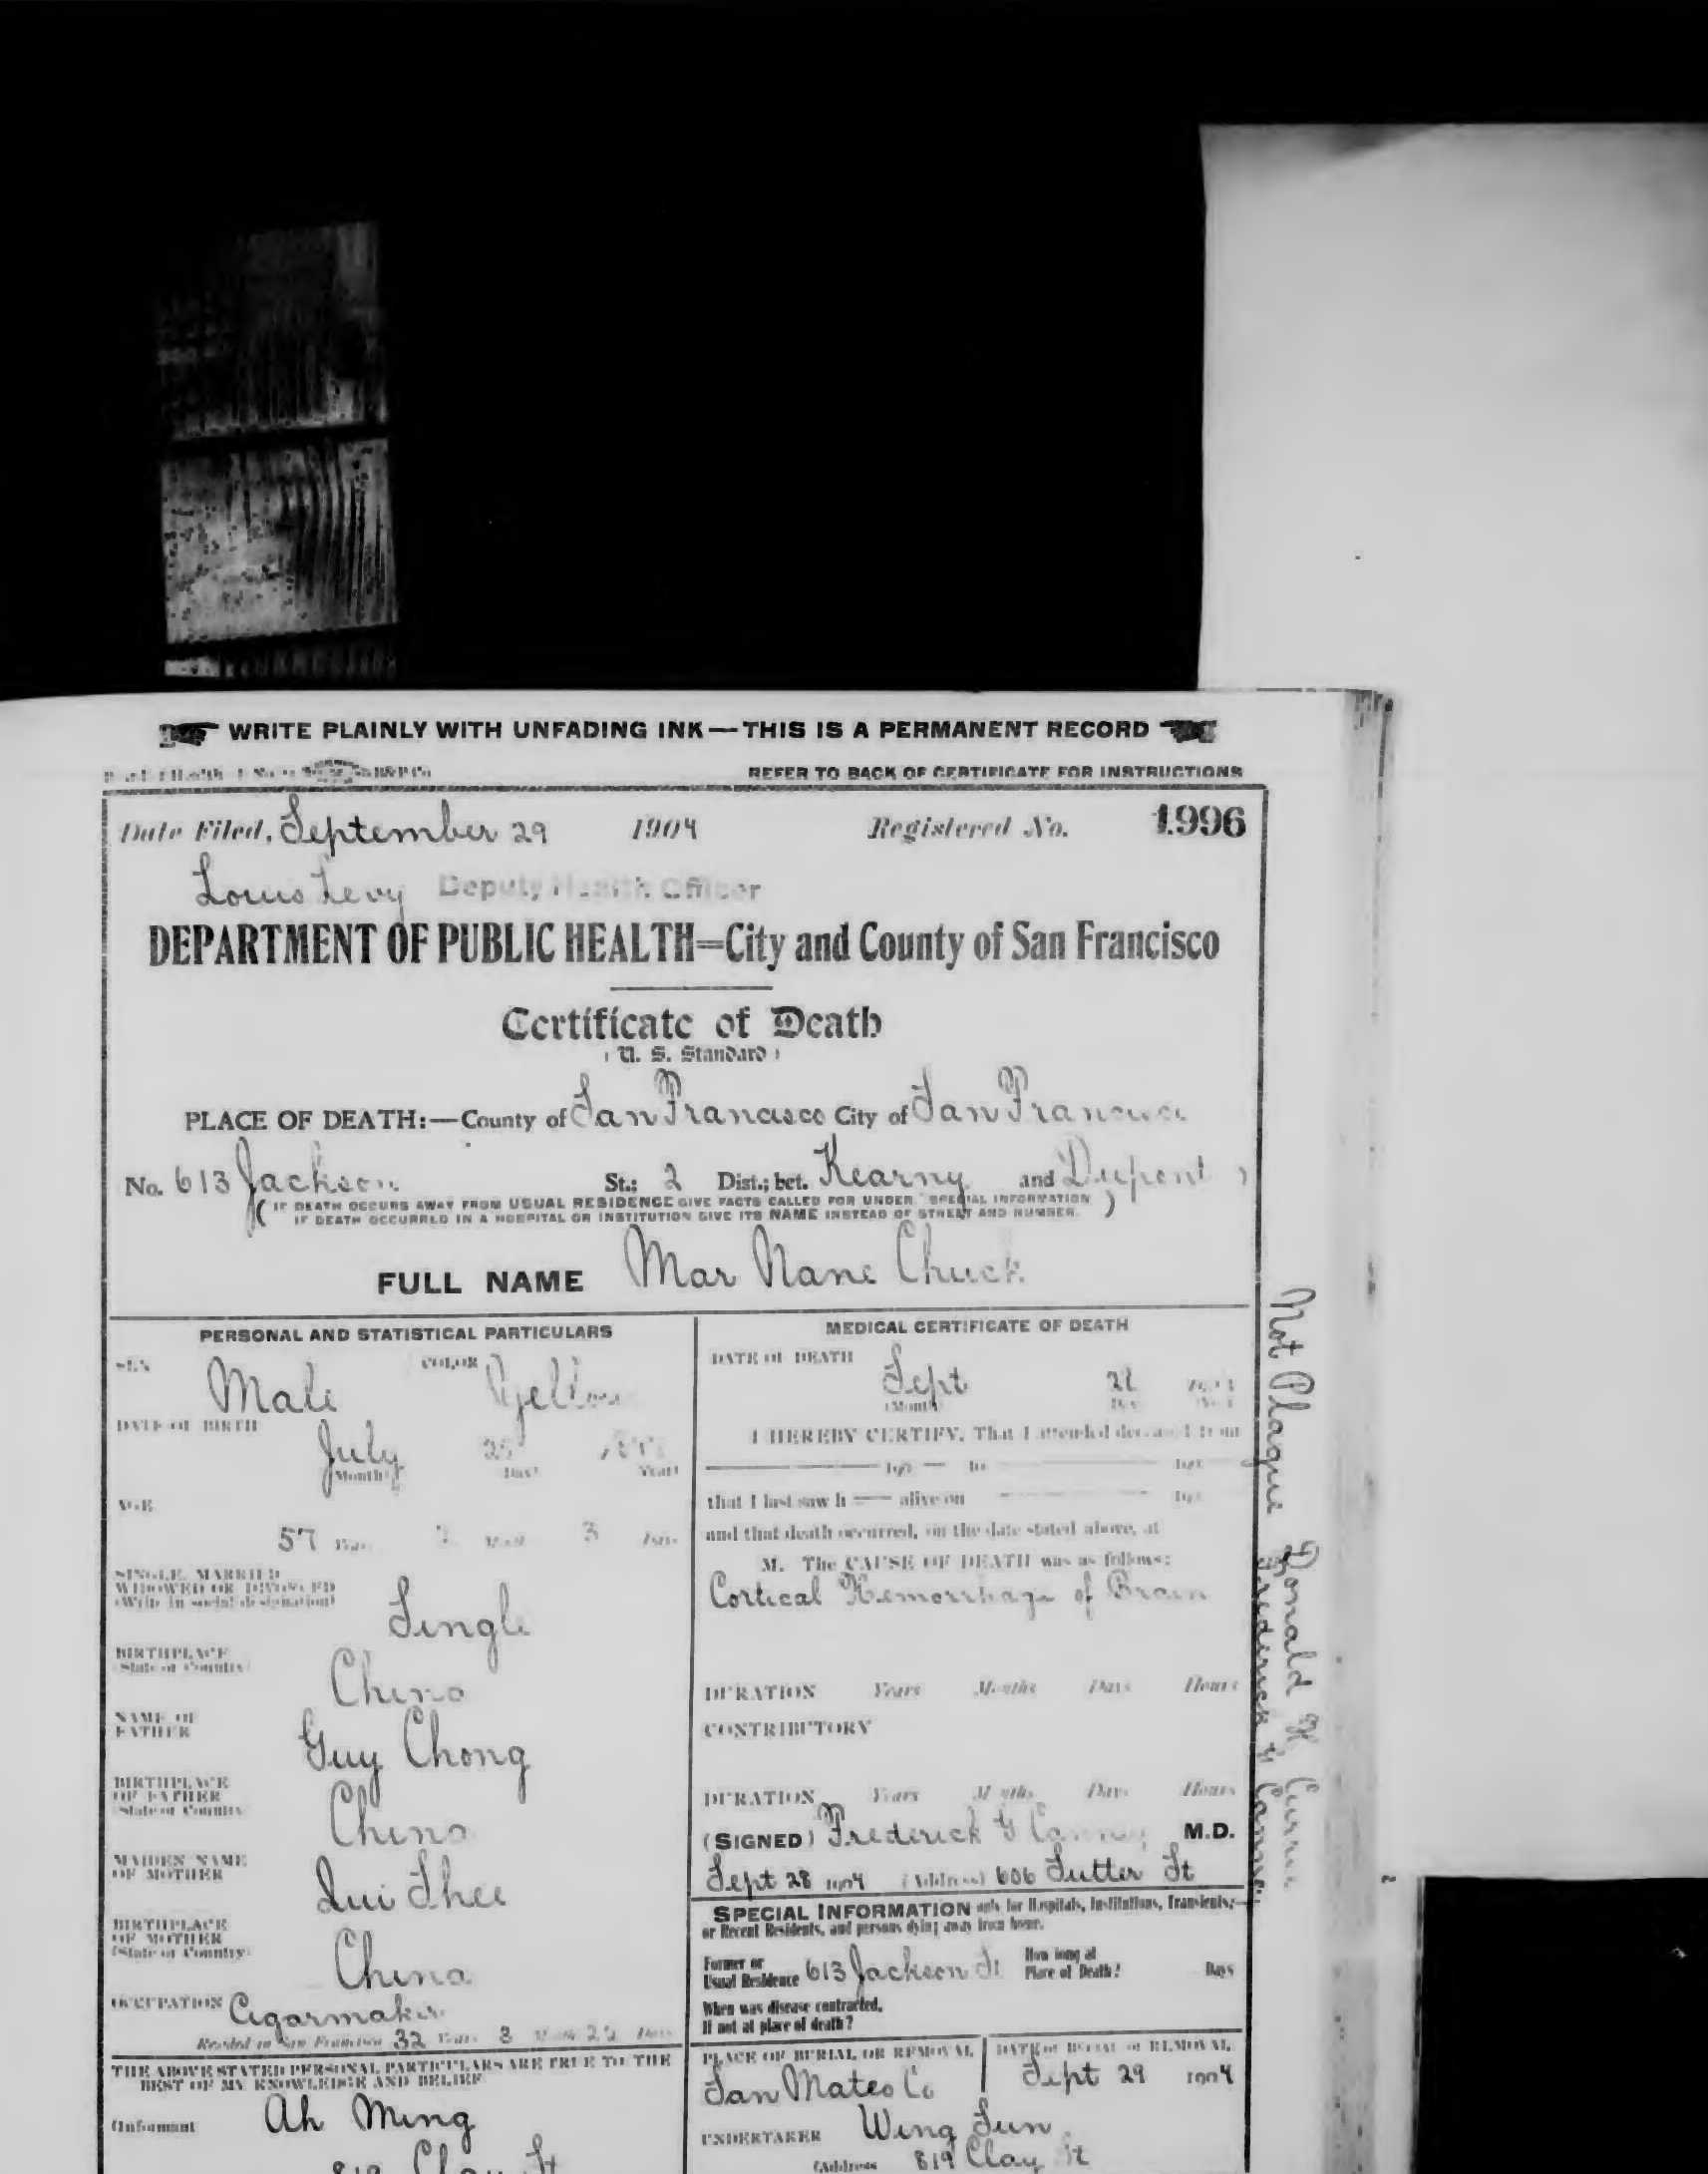 WRITE PLAINLY WITH UNFADING INK—THIS IS A PERMANENT RECORD
REFER TO BACK OF CERTIFICATE FOR INSTRUCTIONS
Date Filed, September 29 1904 Registered No. 1996
Louis Levy Deputy Health Officer
DEPARTMENT OF PUBLIC HEALTH=City and County of San Francisco
Certificate of Death
(U. S. Standard)
PLACE OF DEATH:—County of San Francisco City of San Francisco
No. 613 Jackson St.; 2 Dist.; bet. Kearny and Dupont )
( IF DEATH OCCURS AWAY FROM USUAL RESIDENCE GIVE FACTS CALLED FOR UNDER "SPECIAL INFORMATION
IF DEATH OCCURRED IN A HOSPITAL OR INSTITUTION GIVE ITS NAME INSTEAD OF STREET AND NUMBER. )
FULL NAME Mar Nane Chuck
PERSONAL AND STATISTICAL PARTICULARS
SEX Male COLOR Yellow
DATE OF BIRTH
July
(Month) (Day) (Year)
AGE
57
SINGLE, MARRIED
WIDOWED OR DIVORCED
(Write in social designation)
Single
BIRTHPLACE
(State or Country)
China
NAME OF
FATHER
Guy Chong
BIRTHPLACE
OF FATHER
(State or Country)
China
MAIDEN NAME
OF MOTHER
Qui Shee
BIRTHPLACE
OF MOTHER
(State or Country)
China
OCCUPATION Cigarmaker
Resided in San Francisco 32 Years 3 Months 22 Days
THE ABOVE STATED PERSONAL PARTICULARS ARE TRUE TO THE
BEST OF MY KNOWLEDGE AND BELIEF
(Informant Ah Ming
819 Clay St
MEDICAL CERTIFICATE OF DEATH
DATE OF DEATH
Sept
(Month) (Day) (Year)
I HEREBY CERTIFY, That I attended deceased from
190 — to 190
that I last saw h — alive on 190
and that death occurred, on the date stated above, at
M. The CAUSE OF DEATH was as follows:
Cortical Hemorrhage of Brain
DURATION Years Months Days Hours
CONTRIBUTORY
DURATION Years Months Days Hours
(SIGNED) Frederick G Canney M.D.
Sept 28 1904 (Address) 606 Sutter St
SPECIAL INFORMATION only for Hospitals, Institutions, Transients,
or Recent Residents, and persons dying away from home.
Former or
Usual Residence 613 Jackson St
How long at
Place of Death? Days
When was disease contracted,
If not at place of death?
PLACE OF BURIAL OR REMOVAL
San Mateo Co
DATE of BURIAL or REMOVAL
Sept 29 1904
UNDERTAKER Wing Sun
(Address 819 Clay St
Not Plague Donald H Currie
Frederick G Canney